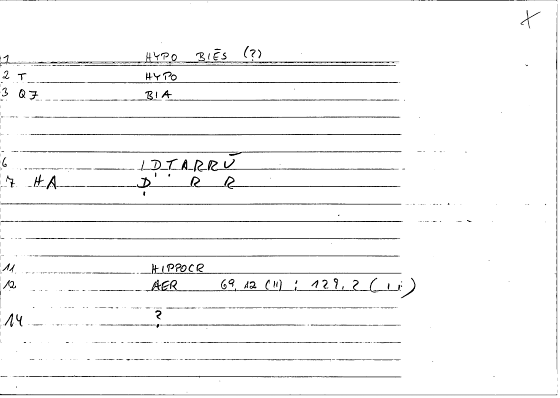 1 HYPO BIĒS (?)
2 T HYPO
3 Q7 BIA
6 IḌṬARRŪ
7 HA Ḍ R R
11 HIPPOCR
12 AER 69,12 (11) ; 129,2 (ii)
14 ?